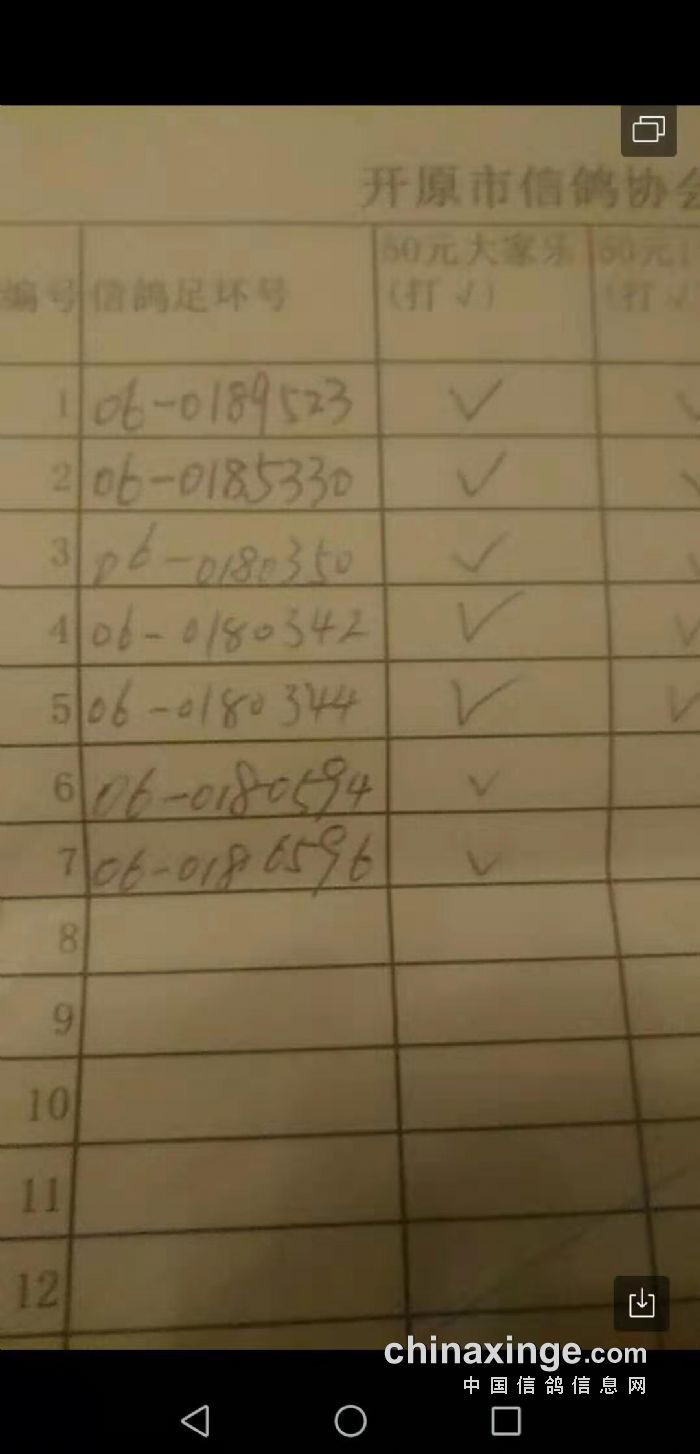 开原市信鸽协会
编号 信鸽足环号 50元大家乐
(打√) (打√
1 06-0189523 √ √
2 06-0185330 √ √
3 06-0180350 √ √
4 06-0180342 √ √
5 06-0180344 √ √
6 06-0180594 √
7 06-0186596 √
8
9
10
11
12
chinaxinge.com
中国信鸽信息网